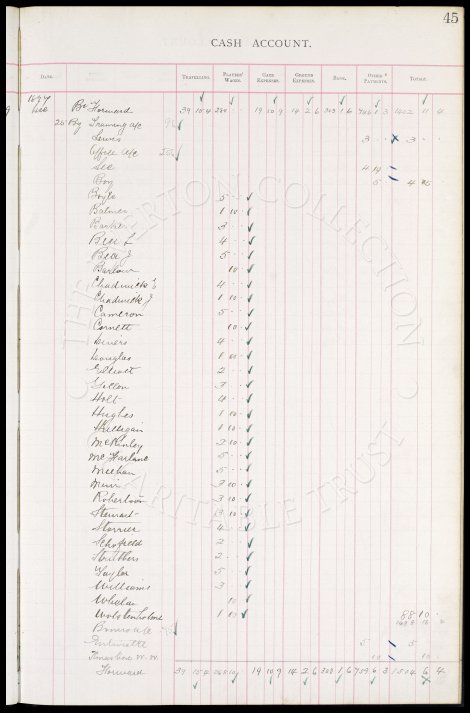 45
CASH ACCOUNT.
DATE. TRAVELLING. PLAYERS' WAGES. GATE EXPENSES. GROUND EXPENSES. BANK. OTHER PAYMENTS. TOTALS.
1897
Dec Bt Forward 39 15 4 19 10 9 14 2 6 303 1 6 11 4
26 By Training a/c
Lewis 3 - - 3 - -
Office a/c
Sec 4 10
Boy 5 4 15
Boyle 5 - -
Balmer 1 10 -
Barker 3 - -
Bell L 4 - -
Bell J 5 - -
Barlow 10 -
Chadwick E 4 - -
Chadwick J 1 10 -
Cameron 5 - -
Cornett 10 -
Divers 4 - -
Douglas 1 10 -
Elliott 2 - -
3 - -
Holt 4 - -
Hughes 1 10 -
1 10 -
McKinley 2 10 -
McFarlane 5 - -
Meehan 5 - -
Muir 3 10 -
Robertson 3 10 -
Stewart 3 10 -
Storrier 4 - -
Schofield 2 - -
Struthers 2 - -
Taylor 5 - -
Williams 3 - -
Whelan 10 -
Wolstenholme 1 10 88 10 -
Bonus a/c
5 - -
10 - 10 -
Forward 39 15 4 19 10 9 14 2 6 303 1 6 6 4
THE EVERTON COLLECTION
CHARITABLE TRUST